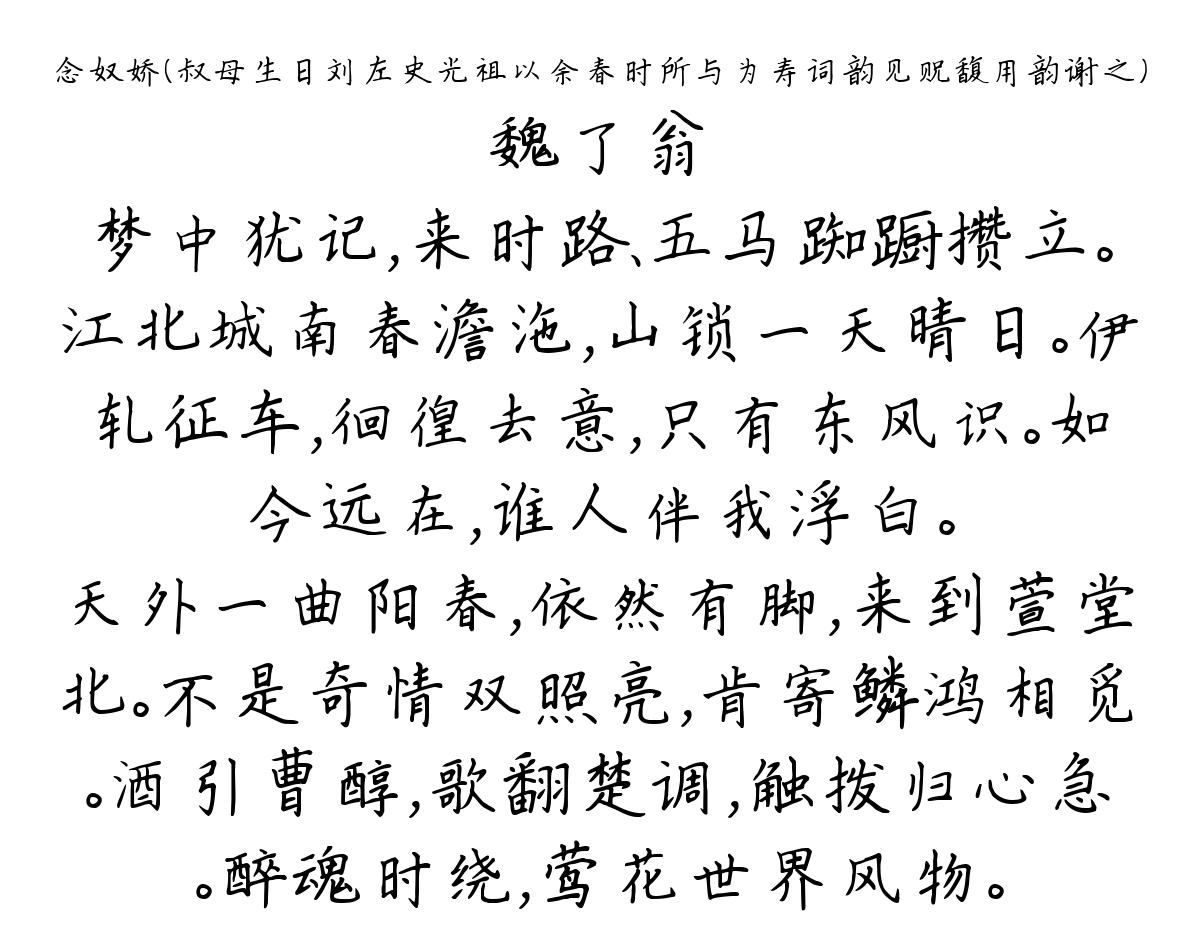 念奴娇(叔母生日刘左史光祖以余春时所与为寿词韵见贶馥用韵谢之)
魏了翁
梦中犹记,来时路、五马踟蹰攒立。
江北城南春澹沲,山锁一天晴日。伊
轧征车,徊徨去意,只有东风识。如
今远在,谁人伴我浮白。
天外一曲阳春,依然有脚,来到萱堂
北。不是奇情双照亮,肯寄鳞鸿相觅
。酒引曹醇,歌翻楚调,触拨归心急
。醉魂时绕,莺花世界风物。